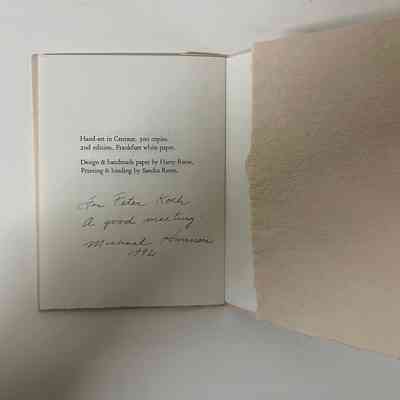 Hand-set in Centaur. 300 copies.
2nd edition, Frankfurt white paper.
Design & handmade paper by Harry Reese,
Printing & binding by Sandra Reese.
For Peter Koch
A good meeting
Michael
1992